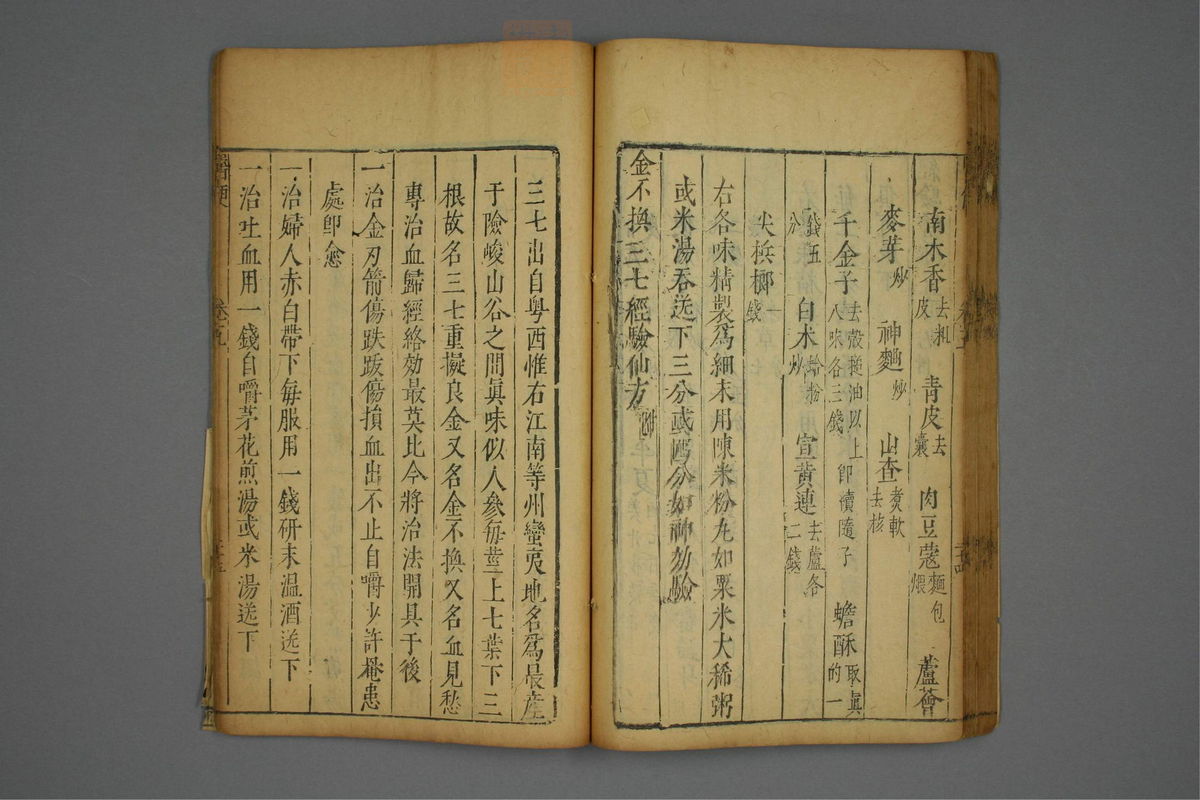 南木香去木乢皮 青皮去囊 肉豆蔻麵包煨 蘆薈
麥芽炒 神麯炒 山查煑軟去核
千金子去殼搥油以上八味各三錢即續隨子 蟾酥取眞的一
錢五分 白术蛤粉炒 宣黃連去蘆各二錢
尖梹榔一錢
右各味精製爲細末用陳米粉丸如粟米大稀粥
或米湯吞送下三分或四分如神効驗
金不換三七經驗仙方附
三七出自粤西惟右江南等州蠻夷地名爲最產
于險峻山谷之間眞味似人參每莖上七葉下三
根故名三七重擬良金又名金不換又名血見愁
專治血歸經絡効最莫比今將治法開具于後
一治金刃箭傷跌跋傷損血出不止自嚼少許罨患
處卽愈
一治婦人赤白帶下每服用一錢研末溫酒送下
一治吐血用一錢自嚼茅花煎湯或米湯送下